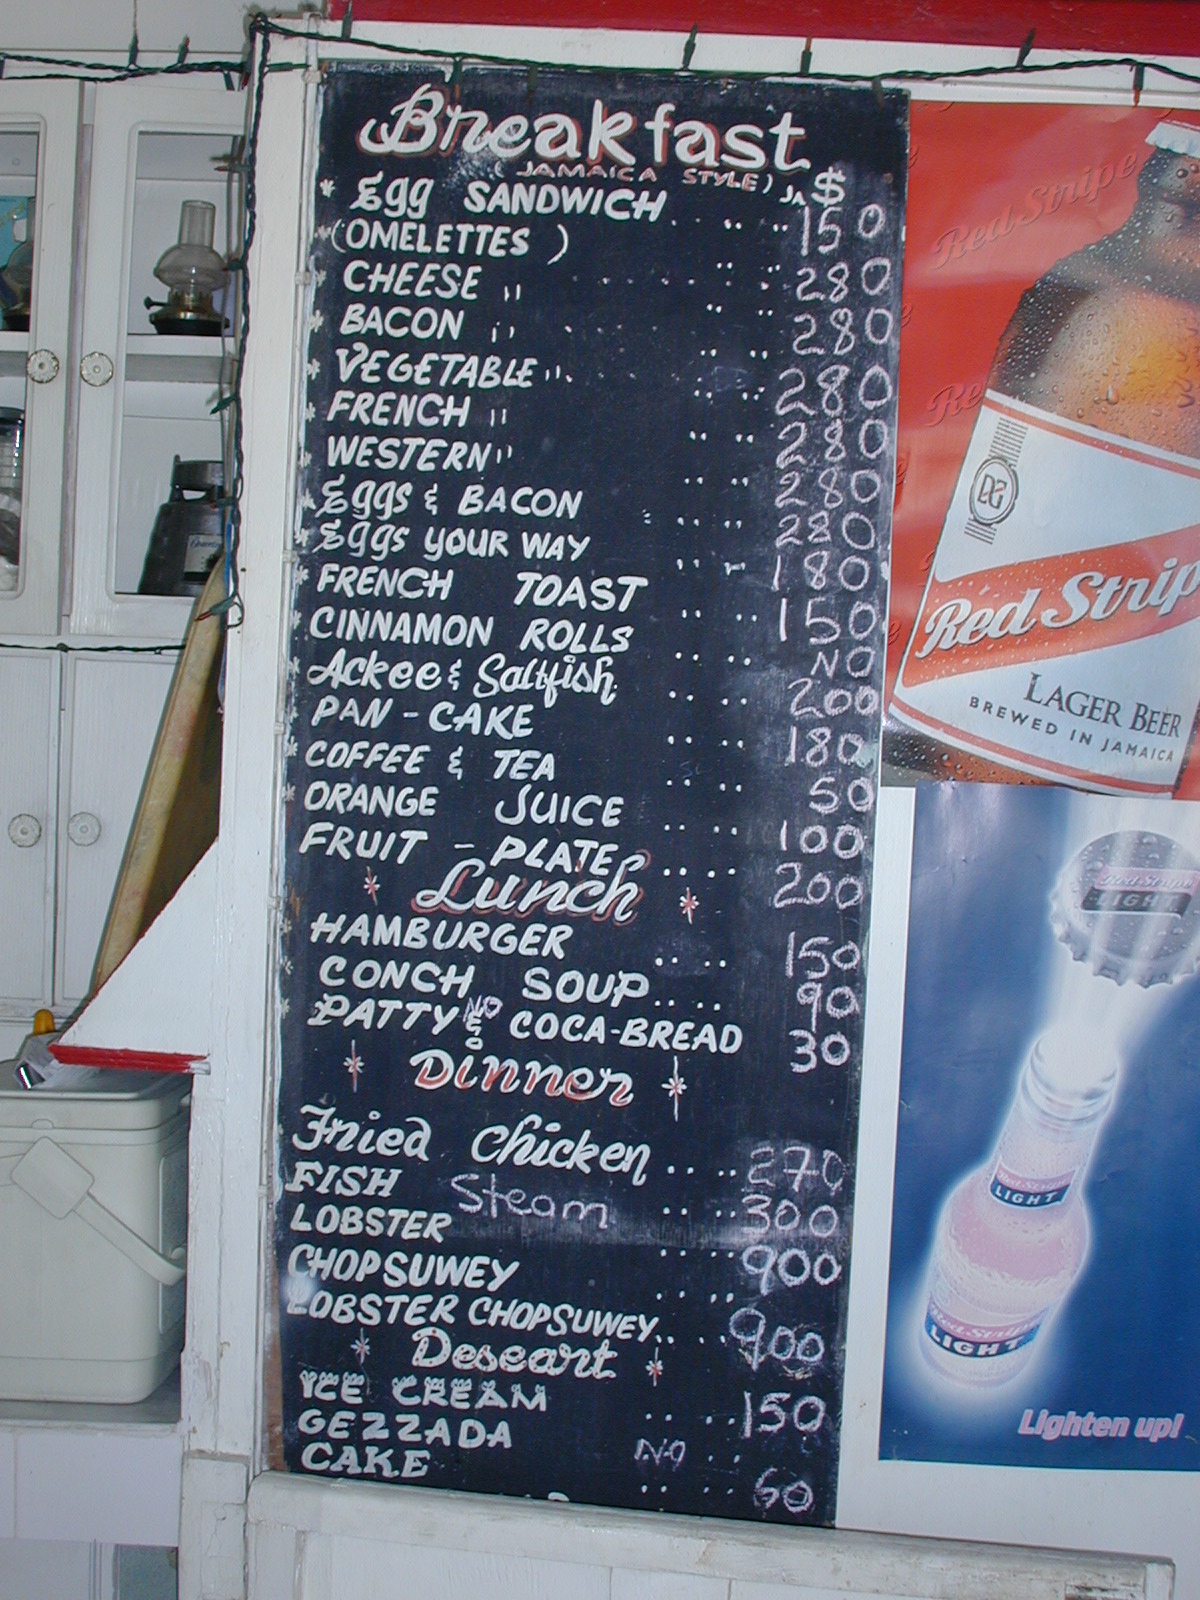 Breakfast
(JAMAICA STYLE) JA $
* Egg SANDWICH .. .. 150
*(OMELETTES )
* CHEESE " .. .. 280
* BACON " .. .. 280
* VEGETABLE " .. .. 280
* FRENCH " .. .. 280
* WESTERN " .. .. 280
* Eggs & BACON .. .. 280
* Eggs YOUR WAY .. .. 180
* FRENCH TOAST .. .. 150
CINNAMON ROLLS .. .. NO
* Ackee & Saltfish .. .. 200
* PAN - CAKE .. .. 180
* COFFEE & TEA .. .. 50
* ORANGE JUICE .. .. 100
FRUIT - PLATE .. .. 200
* Lunch *
HAMBURGER .. .. 150
* CONCH SOUP .. .. 90
* PATTY NO & COCA-BREAD 30
* Dinner *
Fried Chicken .. .. 270
FISH Steam .. .. 300
LOBSTER .. .. 900
CHOPSUWEY .. ..
LOBSTER CHOPSUWEY .. .. 900
* Deseart *
ICE CREAM .. .. 150
GEZZADA NO .. ..
CAKE .. .. 60
Red Stripe
Red
Red Strip
LAGER BEER
BREWED IN JAMAICA
Red Stripe
LIGHT
Red Stripe
LIGHT
Red Stripe
LIGHT
Lighten up!